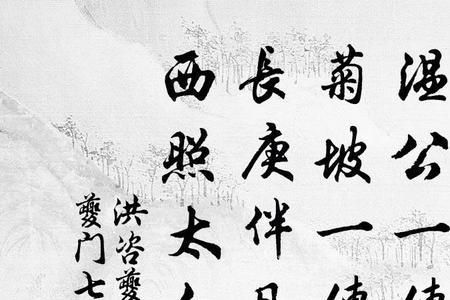 温公一
菊坡一
長庚伴
西照太
洪咨夔
夔门七